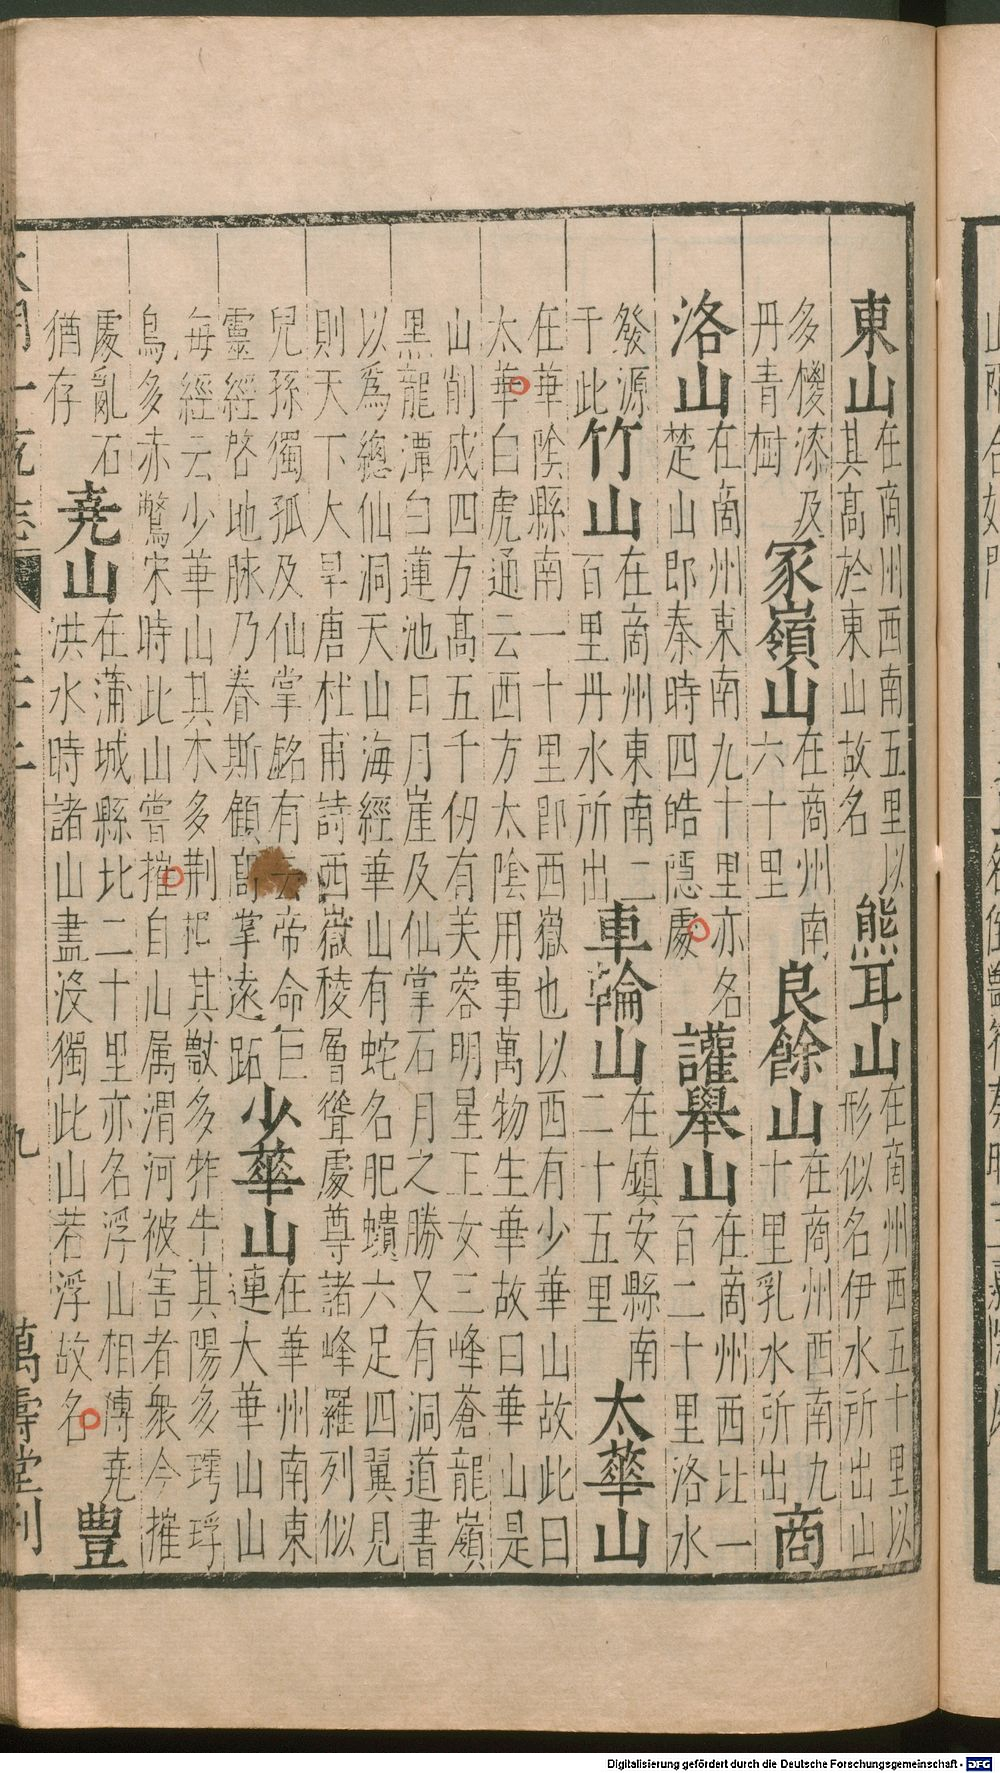 東山在商州西南五里以其髙於東山故名熊耳山在商州西五十里以形似名伊水所出山
多椶漆及丹青樹冢嶺山在商州南六十里良餘山在商州西南九十里乳水所出商
洛山在商州東南九十里亦名楚山即秦時四皓隱處讙舉山在商州西北一百二十里洛水
發源于此竹山在商州東南二百里丹水所出車輪山在鎮安縣南二十五里太華山
在華陰縣南一十里即西嶽也以西有少華山故此曰太華白虎通云西方太陰用事萬物生華故曰華山是
山削成四方髙五千仞有芙蓉明星玉女三峰蒼龍嶺黑龍潭白蓮池日月崖及仙掌石月之勝又有洞道書
以為總仙洞天山海經華山有蛇名肥蟥六足四翼見則天下大旱唐杜甫詩西嶽稜層聳處尊諸峰羅列似
兒孫獨孤及仙掌銘有云帝命巨靈經啓地脉乃眷斯顧高掌遠跖少華山在華州南東連大華山山
海經云少華山其木多荆杞其獸多㸲牛其陽多㻬琈鳥多赤鷩宋時此山嘗摧自山属渭河被害者衆今摧
處亂石猶存堯山在蒲城縣北二十里亦名浮山相傳堯洪水時諸山盡没獨此山若浮故名豊
大明一統志 三十二 九 萬壽堂刊
Digitalisierung gefördert durch die Deutsche Forschungsgemeinschaft - DFG